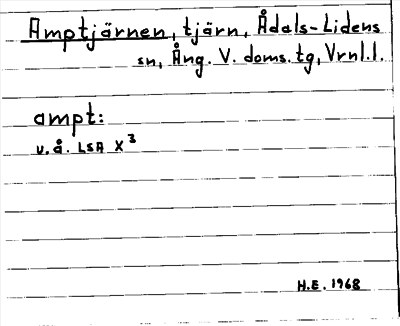 Amptjärnen, tjärn, Ådals-Lidens
sn, Ång. V. doms. tg, Vrnl.l.
ampt:
u.å. LSA X³
H.E. 1968